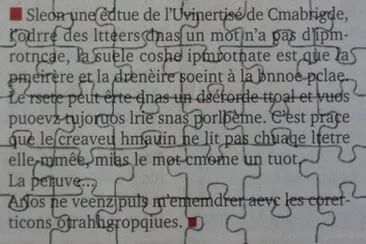 Sleon une édtue de l'Uvinertisé de Cmabrigde,
l'odrre des ltteers dnas un mot n'a pas d'ipm-
rotncae, la suele coshe ipmrotnate est que la
pmeirère et la drenèire soeint à la bnnoe pclae.
Le rsete peut êrte dnas un dséforde ttoal et vuos
puoevz tujoruos lrie snas porlbème. C'est prace
que le creaveu hmauin ne lit pas chuaqe ltetre
elle-mmêe, mias le mot cmome un tuot.
La peruve...
Arlos ne veenz puls m'ememdrer aevc les coref-
ticons otrahhgropqiues.